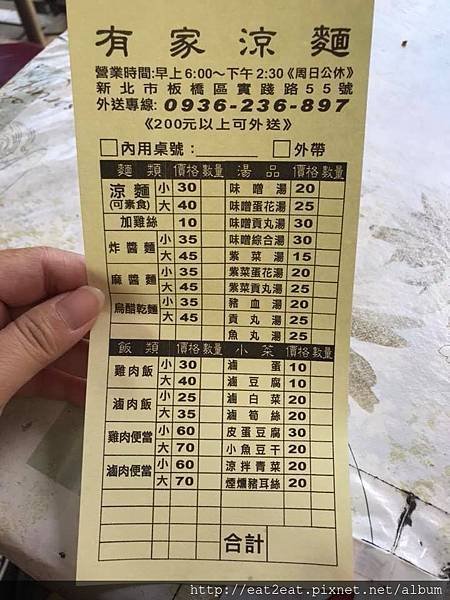 有家涼麵
營業時間:早上6:00~下午2:30《周日公休》
新北市板橋區實踐路55號
外送專線: 0936-236-897
《200元以上可外送》
內用桌號: 外帶
麵類 價格 數量 湯品 價格 數量
涼麵 (可素食) 小 30 味噌湯 20
大 40 味噌蛋花湯 25
加雞絲 10 味噌貢丸湯 30
炸醬麵 小 35 味噌綜合湯 30
大 45 紫菜湯 15
麻醬麵 小 35 紫菜蛋花湯 20
大 45 紫菜貢丸湯 25
烏醋乾麵 小 35 豬血湯 20
大 45 貢丸湯 25
魚丸湯 25
飯類 價格 數量 小菜 價格 數量
雞肉飯 小 30 滷蛋 10
大 40 滷豆腐 10
滷肉飯 小 25 滷白菜 20
大 35 滷筍絲 20
雞肉便當 小 60 皮蛋豆腐 30
大 70 小魚豆干 20
滷肉便當 小 60 涼拌青菜 20
大 70 煙燻豬耳絲 20
合計
http://eat2eat.pixnet.net/album